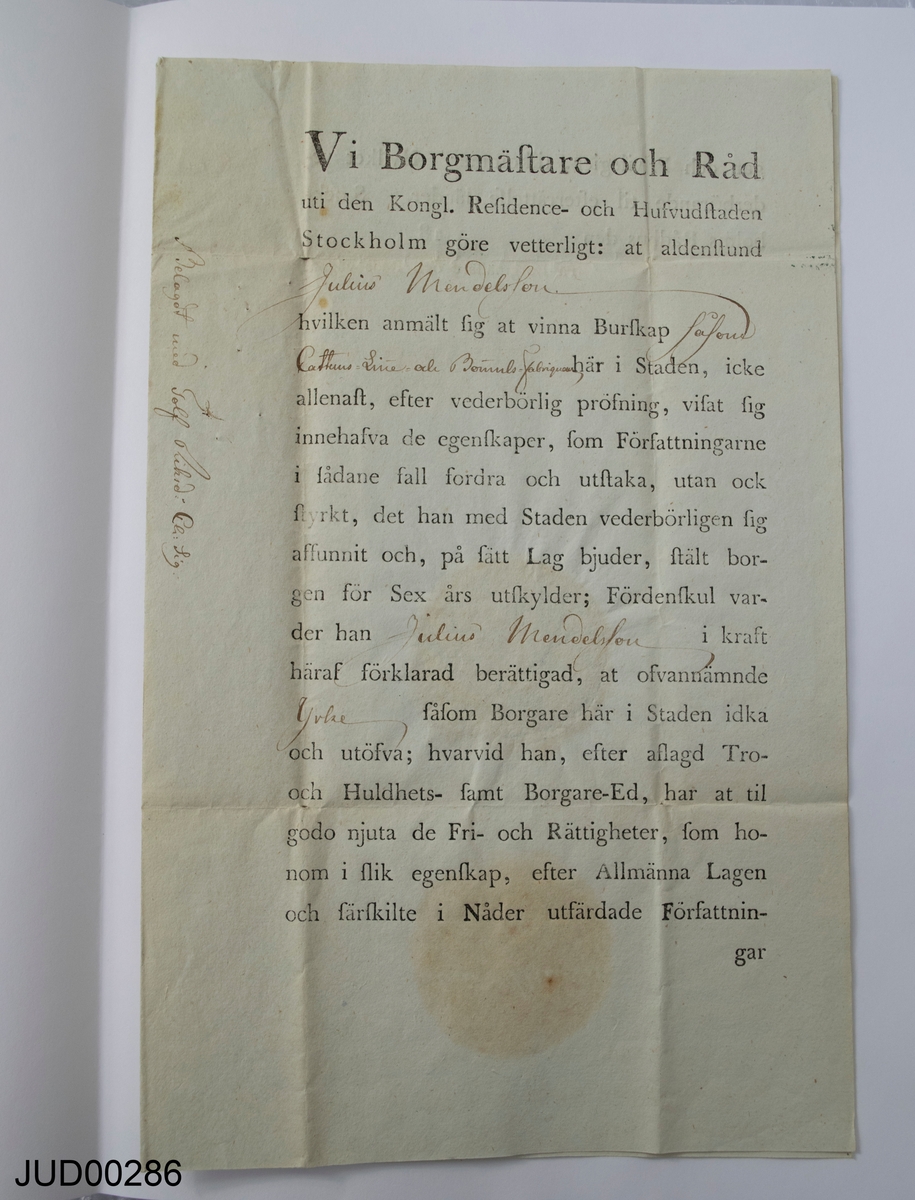 Vi Borgmäſtare och Råd
uti den Kongl. Reſidence- och Hufvudſtaden
Stockholm göre vetterligt: at aldenſtund
Julius Mendelsſon
hvilken anmält ſig at vinna Burſkap ſåſom
Cattuns-Linne- och Bomuls-fabriqueur här i Staden, icke
allenaſt, efter vederbörlig pröfning, viſat ſig
innehafva de egenſkaper, ſom Författningarne
i ſådane fall fordra och utſtaka, utan ock
ſtyrkt, det han med Staden vederbörligen ſig
affunnit och, på ſätt Lag bjuder, ſtält bor-
gen för Sex års utſkylder; Fördenſkul var-
der han Julius Mendelsſon i kraft
häraf förklarad berättigad, at ofvannämnde
Yrke ſåſom Borgare här i Staden idka
och utöfva; hvarvid han, efter aflagd Tro-
och Huldhets- ſamt Borgare-Ed, har at til
godo njuta de Fri- och Rättigheter, ſom ho-
nom i ſlik egenſkap, efter Allmänna Lagen
och färſkilte i Nåder utfärdade Författnin-
gar
Belagdt med Tolf
JUD00286